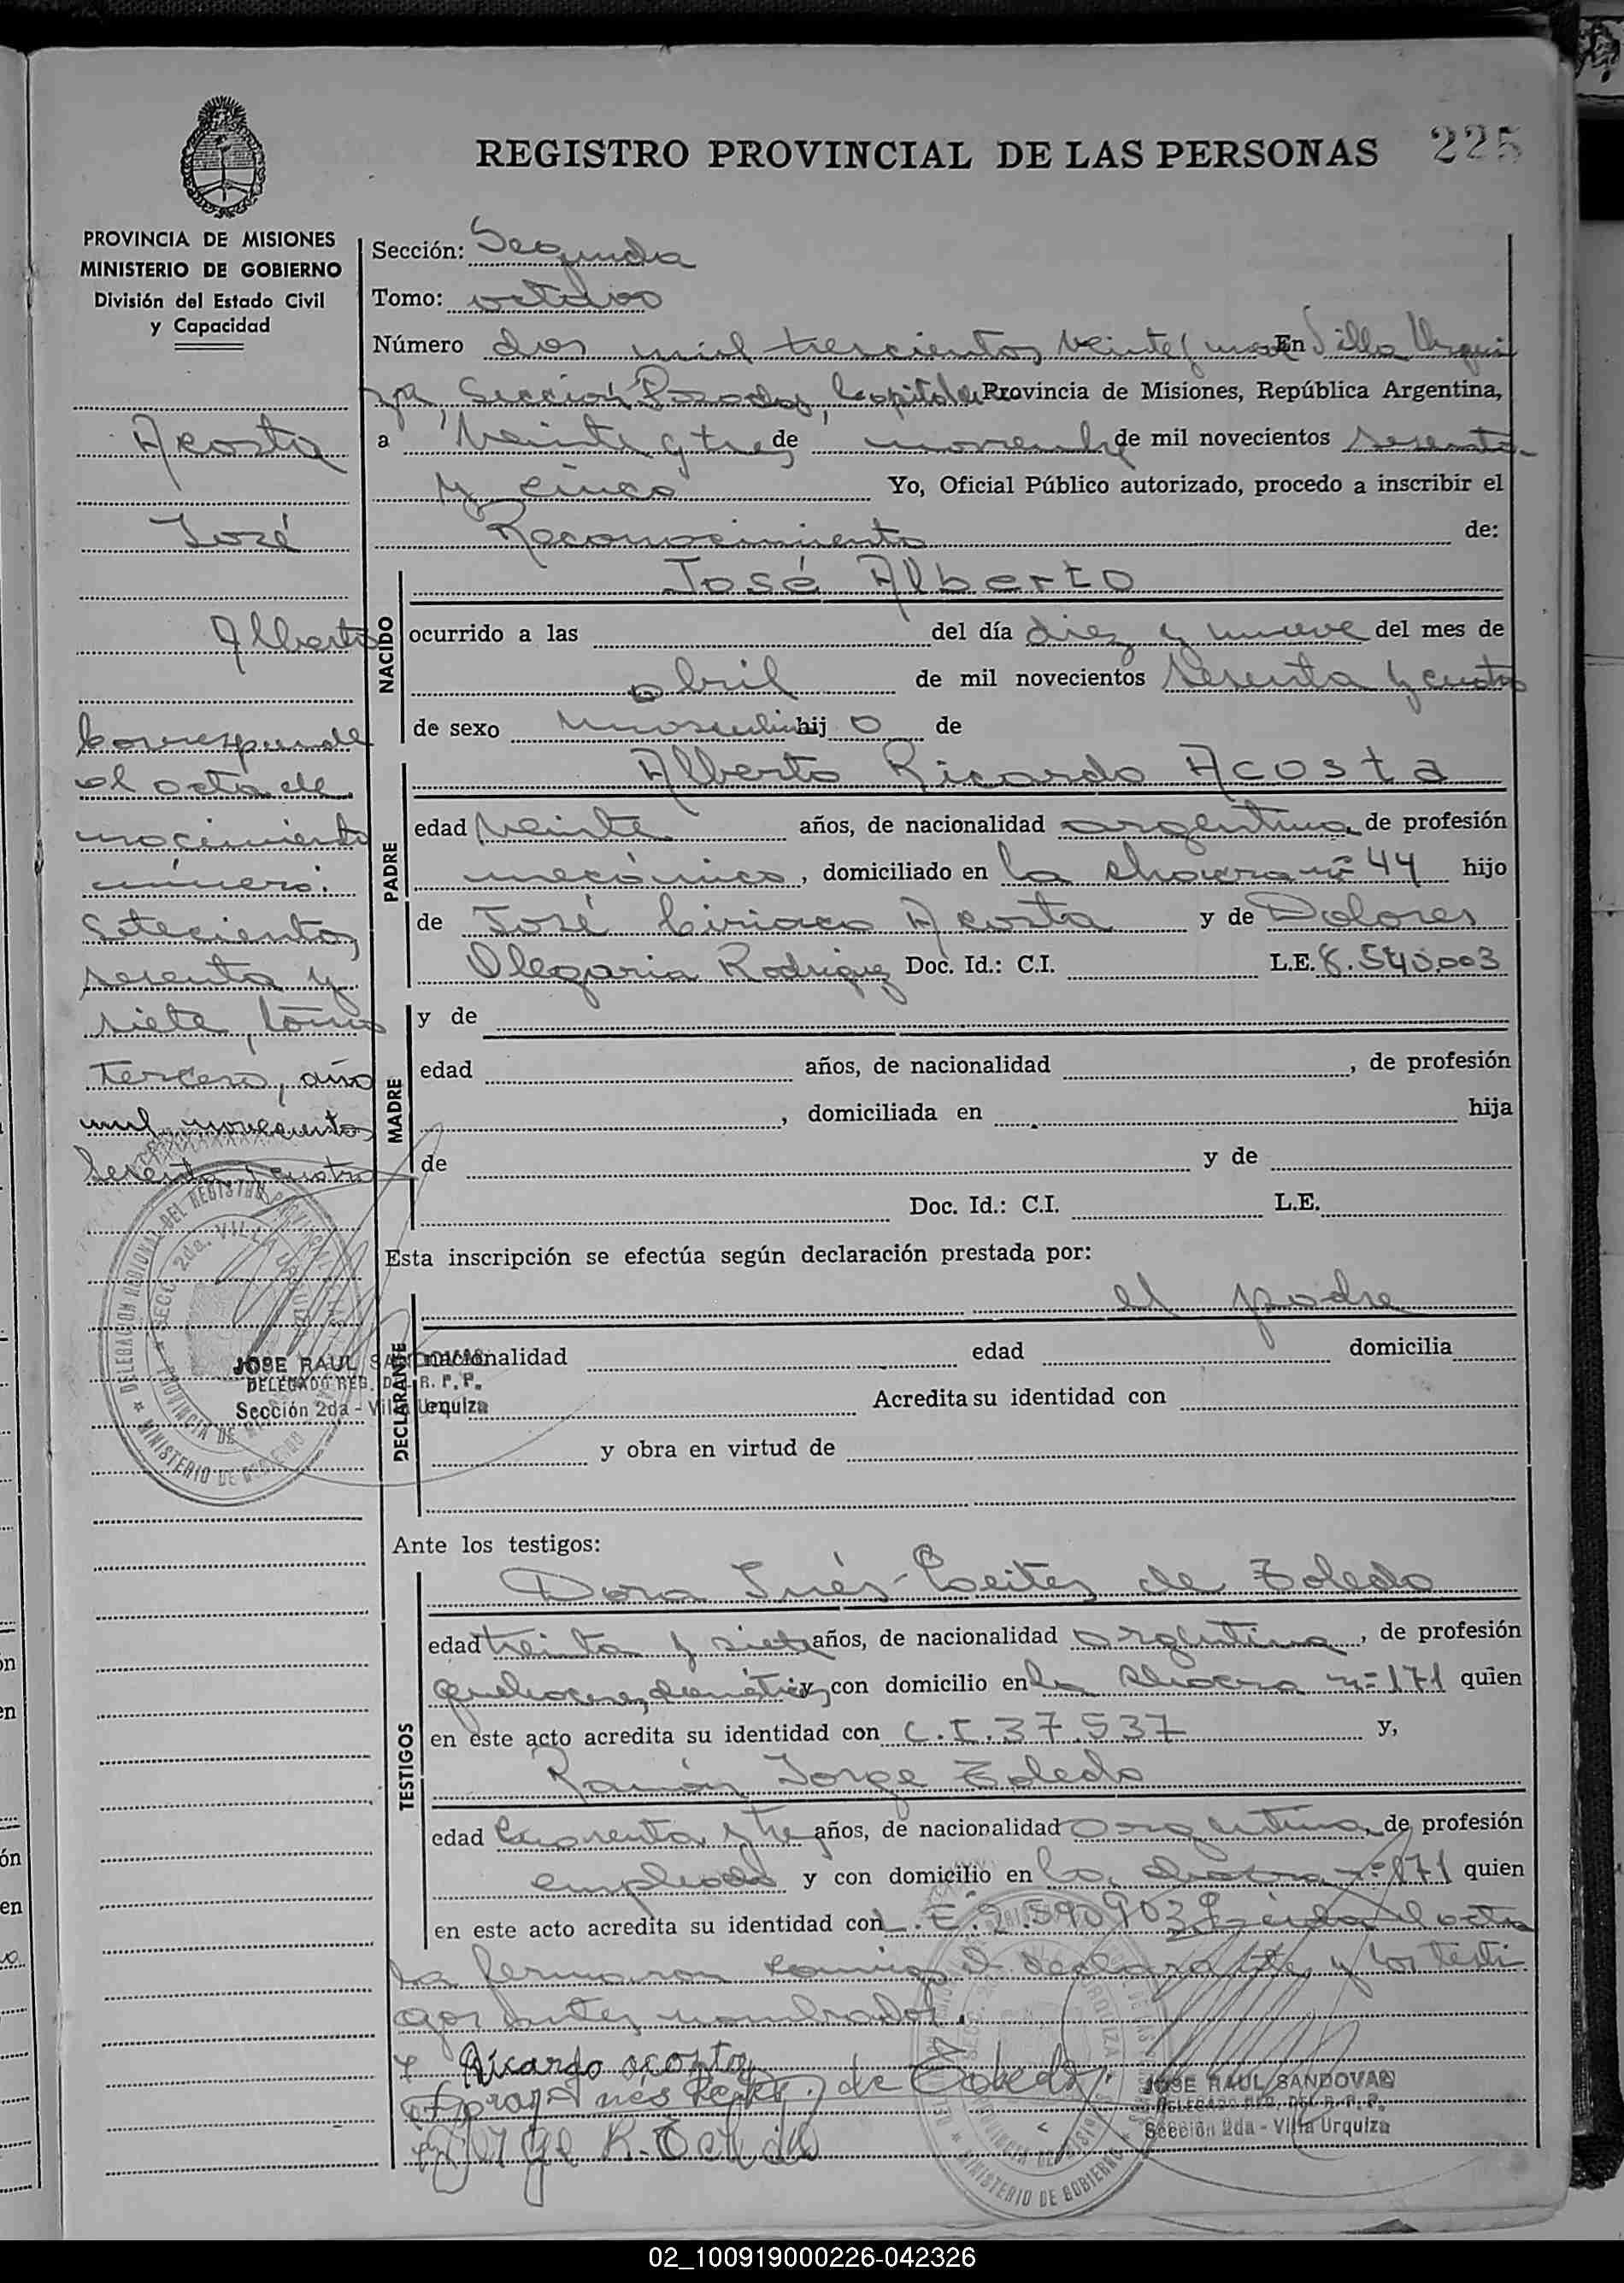 REGISTRO PROVINCIAL DE LAS PERSONAS 225
PROVINCIA DE MISIONES
MINISTERIO DE GOBIERNO
División del Estado Civil
y Capacidad
Acosta
José
Alberto
Corresponde
al acta de
nacimiento
número:
Setecientos
sesenta y
siete, tomo
Tercero, año
mil novecientos
sesenta y cuatro
JOSE RAUL SANDOVAL
DELEGADO REG. DEL R. P. P.
Sección 2da - Villa Urquiza
Sección: Segunda
Tomo: octavo
Número dos mil trescientos veinte y En Villa Urqui
za, Sección Posadas, Capital de Provincia de Misiones, República Argentina,
a veinte y tres de noviembre de mil novecientos sesenta
y cinco Yo, Oficial Público autorizado, procedo a inscribir el
Reconocimiento de:
NACIDO
José Alberto
ocurrido a las del día diez y nueve del mes de
abril de mil novecientos sesenta y cuatro
de sexo masculino hij o de
PADRE
Alberto Ricardo Acosta
edad veinte años, de nacionalidad argentina de profesión
mecánico, domiciliado en la chacra nº 44 hijo
de José Ciriaco Acosta y de Dolores
Olegaria Rodriguez Doc. Id.: C.I. L.E. 8.540.003
MADRE
y de
edad años, de nacionalidad , de profesión
, domiciliada en hija
de y de
Doc. Id.: C.I. L.E.
Esta inscripción se efectúa según declaración prestada por:
DECLARANTE
el padre
nacionalidad edad domicilia
Acredita su identidad con
y obra en virtud de
Ante los testigos:
TESTIGOS
Dora Inés Leites de Toledo
edad treinta y siete años, de nacionalidad argentina, de profesión
quehaceres domésticos y con domicilio en la chacra nº 171 quien
en este acto acredita su identidad con C.I. 37.537 y,
Ramón Jorge Toledo
edad Cuarenta y tres años, de nacionalidad argentina de profesión
empleado y con domicilio en la chacra nº 171 quien
en este acto acredita su identidad con L.E. 2.5909039 Leida el acta
la firmaron conmigo el declarante y los testi
gos antes nombrados.
Ricardo acosta
Dora Ines Leites de Toledo
Jorge R. Toledo
JOSE RAUL SANDOVAL
DELEGADO REG. DEL R. P. P.
Sección 2da - Villa Urquiza
02_100919000226-042326